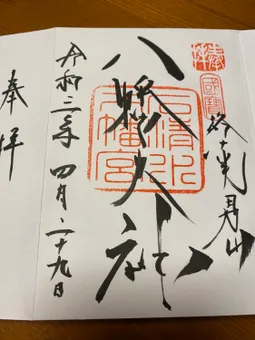 國寶
男山
八幡大神
石清水
八幡宮
令和三年四月二十九日
奉拝